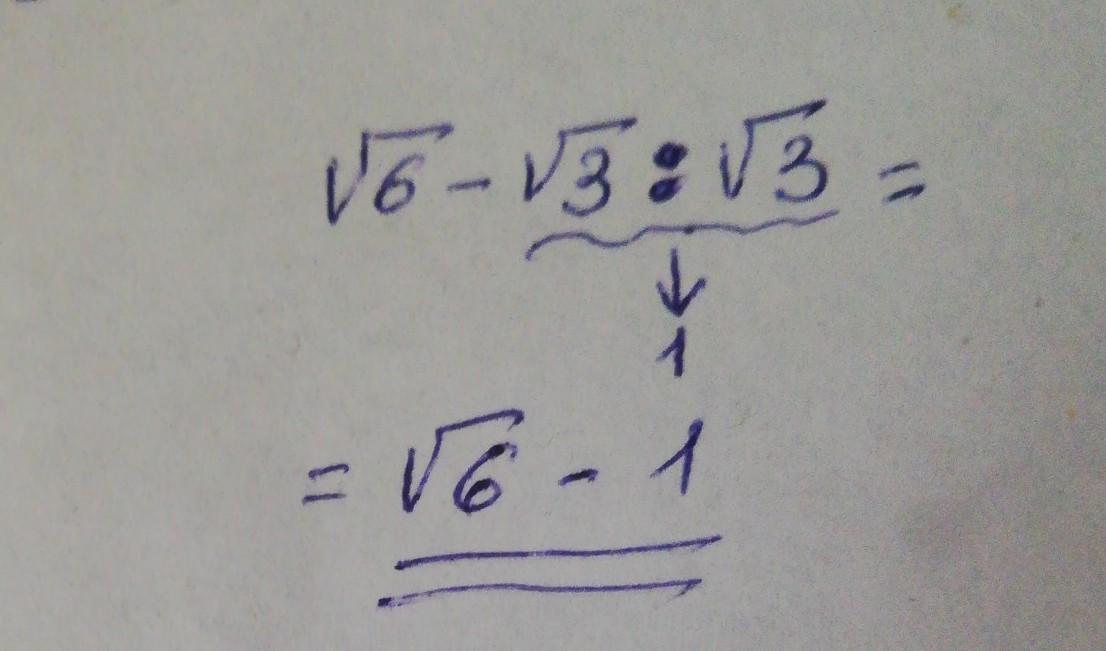 √6 - √3 : √3 =
↓
1
= √6 - 1